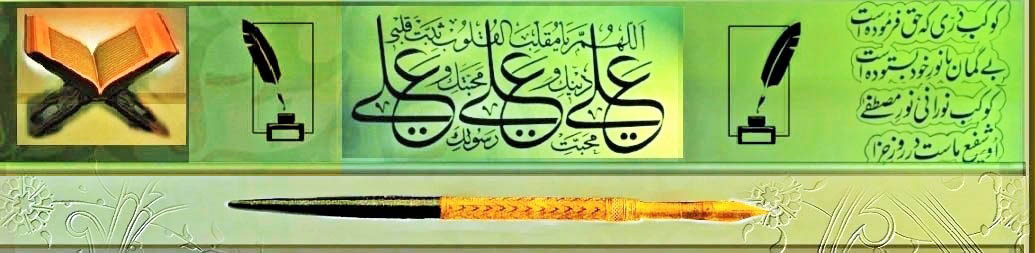 اللهم یا مقلب القلوب ثبت قلبی
علی دینک و علی محبتک و علی
محبت رسولک
کوکب دری که حق فرموده است
بی گمان با نور خود بستوده است
کوکب نورانی نور مصطفی
او شفیع ماست در روز جزا